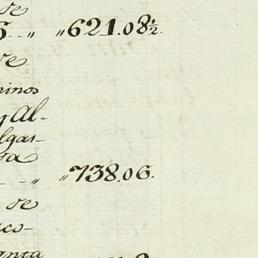 de
„ „621.08½.
de
minos
y Al-
lgas-
sa
„ „738.06.
de
co-
anta